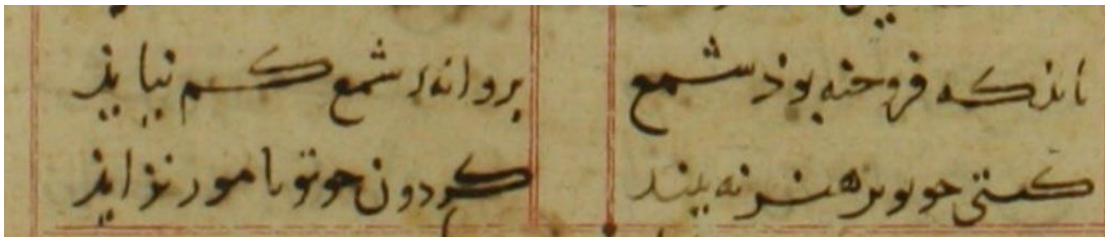 فروخته بوذ شمع پروانهٔ شمع کم نیایذ
گیتی چو تو پرهنر نه بیند گردون چو تو نامور نزایذ